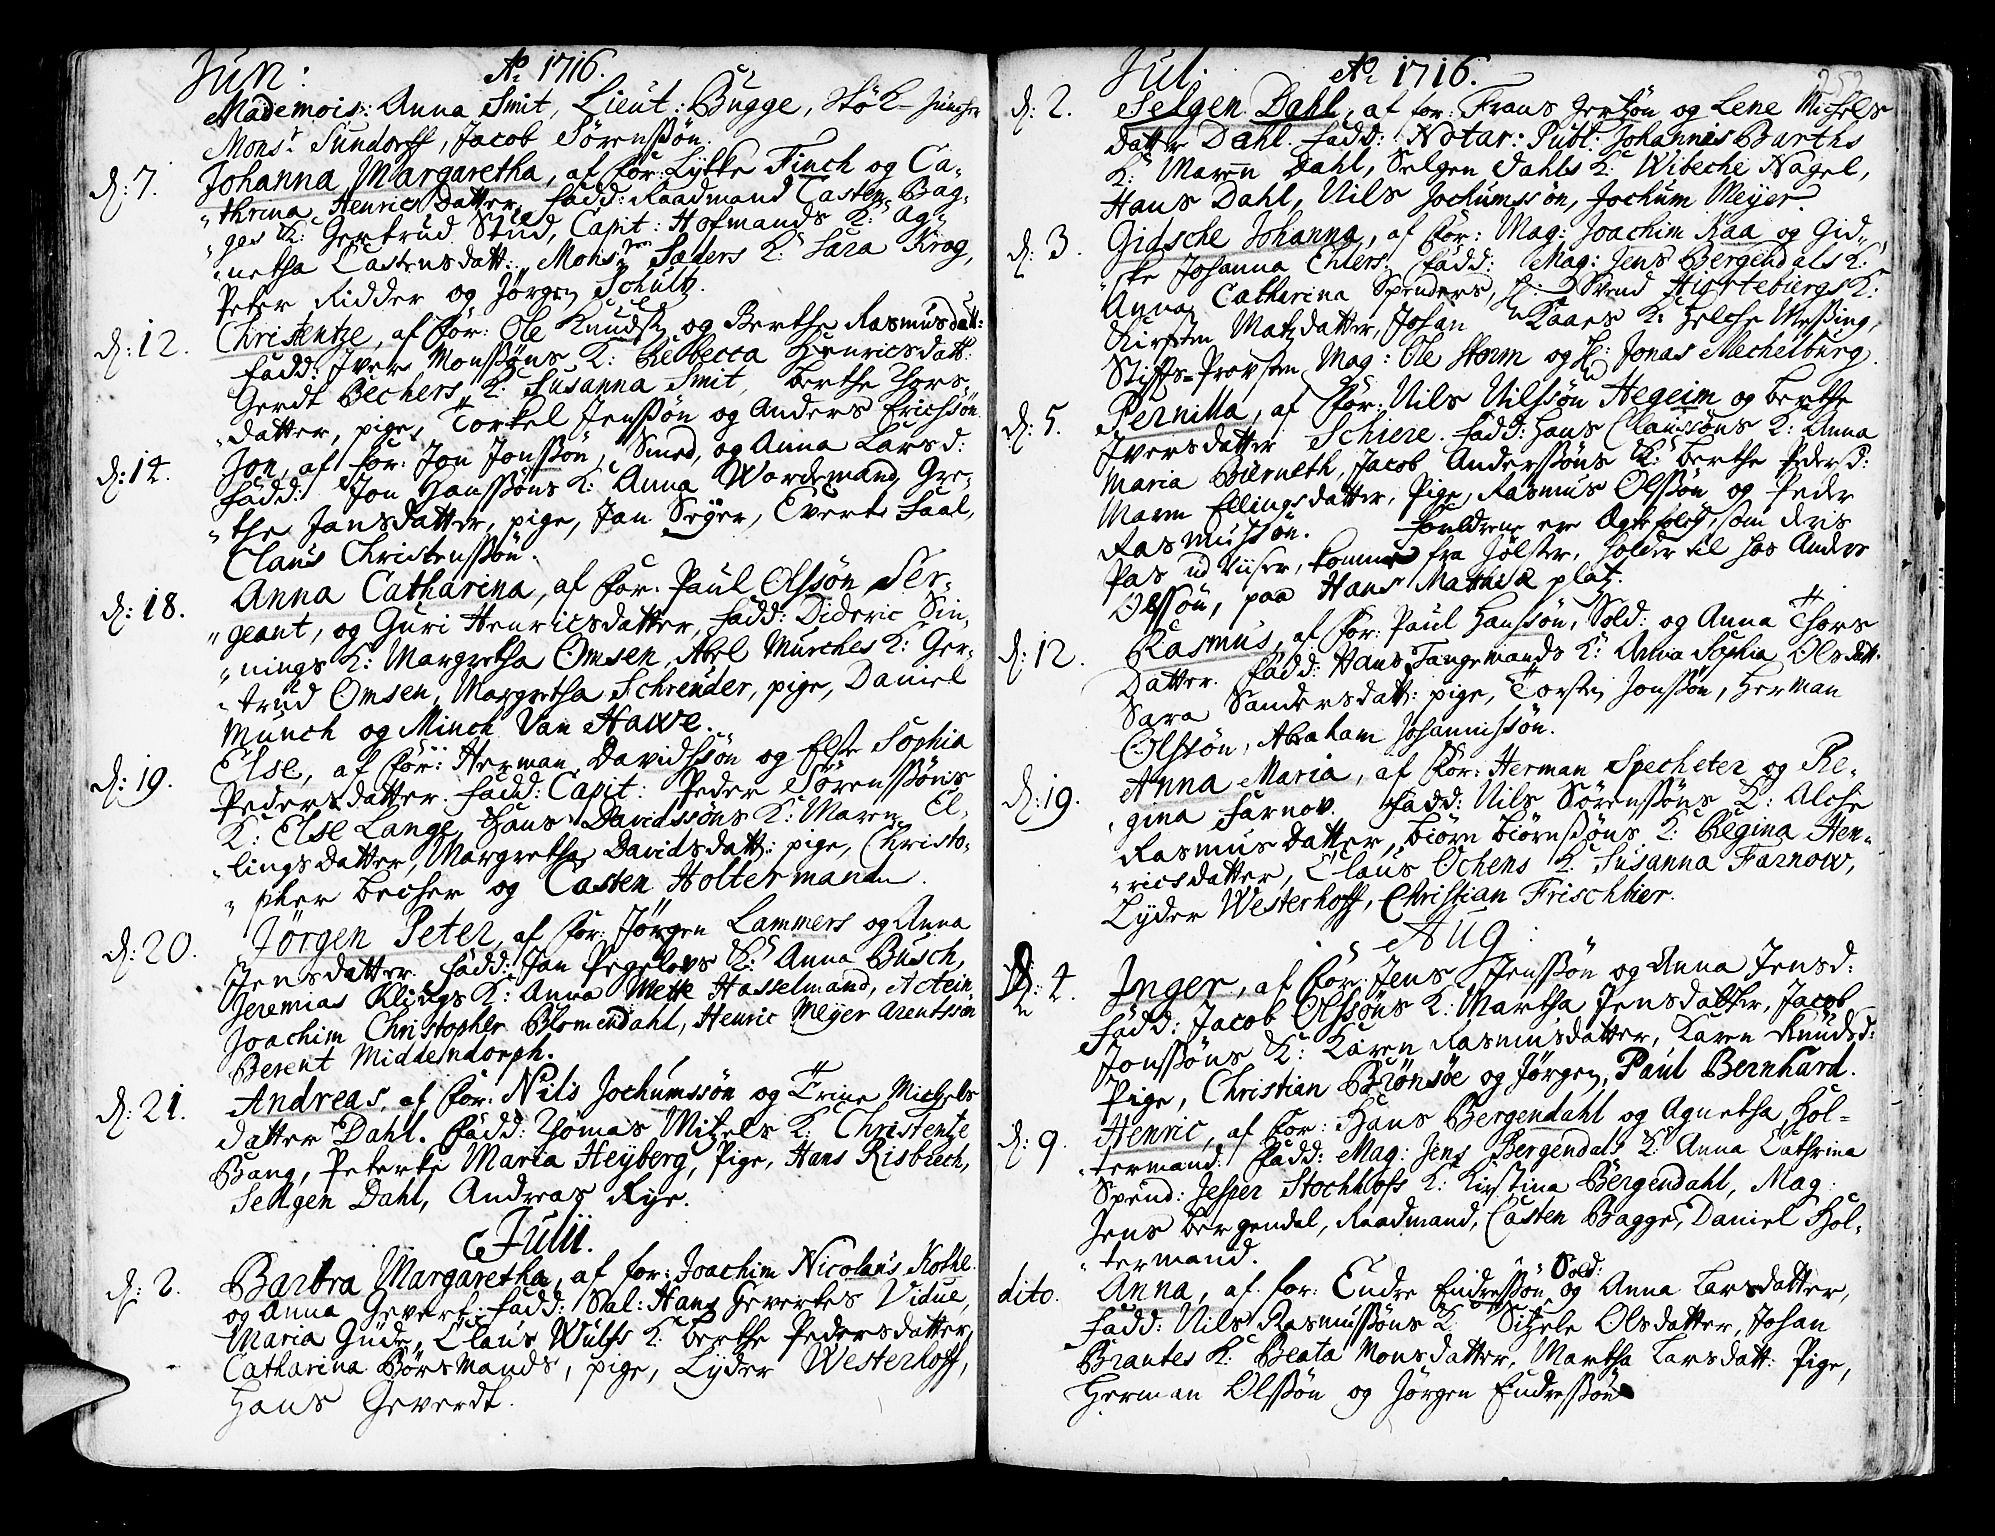 Jun: Ao 1716.
Mademois: Anna Smit, Lieut: Bugge, Stök-Juncher
Monsr Sundorff, Jacob Sörenssön.
d: 7. Johanna Margaretha, af for: Lykke Finch og Ca-
"thrina Henrics Datter, fadd: Raadmand Casten Bag-
"ges K: Gertrud Stud, Capit: Hofmands K: Ag-
"netha Castensdatt:, Monsr Saders K: Sara Krog,
Peter Ridder og Jörgen Schultz.
d: 12. Christentze, af for: Ole Knuds: og Berthe Rasmusdatt:
fadd: Iver Monssöns K: Rebecca Henricsdatt:
Gerdt Bechers K: Susanna Smit, Berthe Thors-
"datter, pige, Torkel Jenssön og Anders Erichssön
d: 14. Jon, af for: Jon Jonssön, Smed, og Anna Larsd:
fadd: Jon Hanssöns K: Anna Wardemand, Gre-
"the Jansdatter, pige, Jan Seyer, Evert Faal,
Claus Christenssön.
d: 18. Anna Catharina, af for: Paul Olssön Ser-
"geant, og Guri Henricsdatter, fadd: Dideric Sin-
"nings K: Margretha Omsen, Abel Murches K: Ger-
"trud Omsen, Margretha Schreuder, pige, Daniel
Munch og Minck Van Hawe.
d: 19. Else, af for: Herman Davidssön og Else Sophia
Pedersdatter. fadd: Capit: Peder Sörenssöns
K: Else Lange, Hans Davidssöns K: Maren El-
"lingsdatter, Margretha Davidsdatt: pige, Christo-
"pher Becher og Casten Holtermand.
d: 20. Jörgen Peter, af for: Jörgen Lammers og Anna
Jensdatter. fadd: Jan Pegelovs K: Anna Busch,
Jeremias Klings K: Anna Mette Hasselmand,
Joachim Christopher Blomendahl, Henric Meyer Arentssön
Berent Middendorph.
d: 21. Andreas, af for: Nils Jochumssön og Trine Michels
datter Dahl. fadd: Thomas Mitzels K: Christentze
Bang, Peterke Maria Heyberg, Pige, Hans Risbrech,
Sellgen Dahl, Andreas Rye.
Julii.
d: 2. Barbra Margaretha, af for: Joachim Nicolaus Kohl
og Anna Gevert: fadd: Sal: Hans Geverts Vidue,
Maria Gude, Claus Wulfs K: Berthe Pedersdatter,
Catharina Börsmands, pige, Lyder Westerhoff,
Hans Geverdt.
Jul: Ao 1716. 252
d: 2. Selgen Dahl, af for: Frans Gertsön og Lene Michels
datter Dahl. fadd: Notar: Publ: Johannis Barths
K: Maren Dahl, Selgen Dahls K: Wibeche Nagel,
Hans Dahl, Nils Jochumssön, Jochum Meyer.
d: 3. Gidsche Johanna, af for: Mag: Joachim Kaa og Gid-
"ske Johanna Ehlers. fadd: Mag: Jens Bergendals K:
Anna Catharina Spenders, H: Svend Hiorteburgs K:
Kirsten Matzdatter, Johan Kaaes K: Helche Wessing,
Stiffs-Provsten Mag: Ole Storm og H: Jonas Mechelburg.
d: 5. Pernilla, af for: Nils Nilssön Hegeim og Berthe
Iversdatter Schiere. fadd: Hans Claussöns K: Anna
Maria Burneth, Jacob Anderssöns K: Berthe Pedersd:
Maren Ellingsdatter, Pige, Rasmus Olssön og Peder
Rasmussön. Forældrene ere Ægte folch, som deris
Pas udviiser, komne fra Jölster, holder til hos Anders
Olssön, paa Hans Mathiæ plaz.
d: 12. Rasmus, af for: Paul Hanssön, Sold: og Anna Thors
Datter. fadd: Hans Tangemands K: Anna Sophia Olsdatt:
Sara Sandersdatt: pige, Torsten Jonssön, Herman
Olssön, Abraham Johannissön.
d: 19. Anna Maria, af for: Herman Specheter og Re-
"gina Farnov. fadd: Nils Sörenssöns K: Alche
Rasmusdatter, Biörn Biörnssöns K: Regina Hen-
"ricsdatter, Claus Ochens K: Susanna Farnow,
Lyder Westerhoff, Christian Frischbier.
Aug:
d: 4. Inger, af for: Jens Jenssön og Anna Jensd:
fadd: Jacob Olssöns K: Martha Jensdatter, Jacob
Jonssöns K: Karen Rasmusdatter, Karen Knudsd:
Pige, Christian Brönsöe og Jörgen Paul Bernhard.
d: 9. Henric, af for: Hans Bergendahl og Agnetha Hol-
"termand. fadd: Mag: Jens Bergendals K: Anna Cathrina
Spend: Jesper Stochhofs K: Kirstina Bergendahl, Mag:
Jens Bergendal, Raadmand, Casten Bagge, Daniel Hol-
"termand.
dito. Anna, af for: Endre Endressön Sold: og Anna Larsdatter,
fadd: Nils Rasmussöns K: Sitzele Olsdatter, Johan
Brantes K: Beata Monsdatter, Martha Larsdatt: Pige,
Herman Olssön og Jörgen Endressön